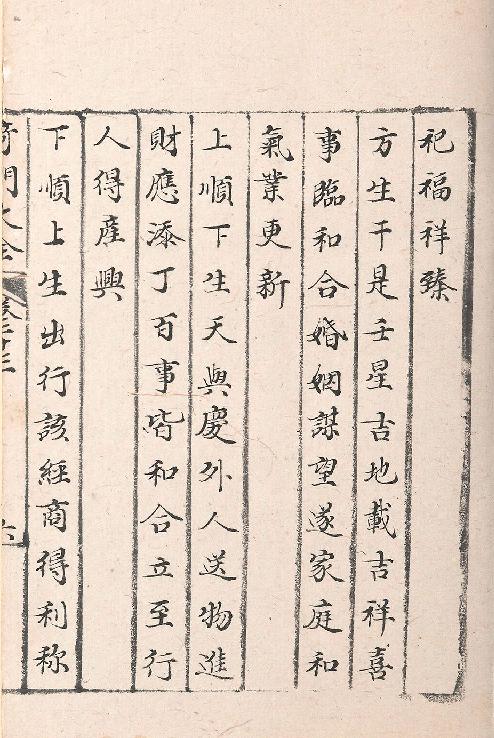 祀福祥臻
方生干是壬星吉地載吉祥喜
事臨和合婚姻謀望遂家庭和
氣業更新
上順下生天與慶外人送物進
財應添丁百事皆和合立至行
人得產興
下順上生出行該經商得利称
奇門大全
卷二十三
六